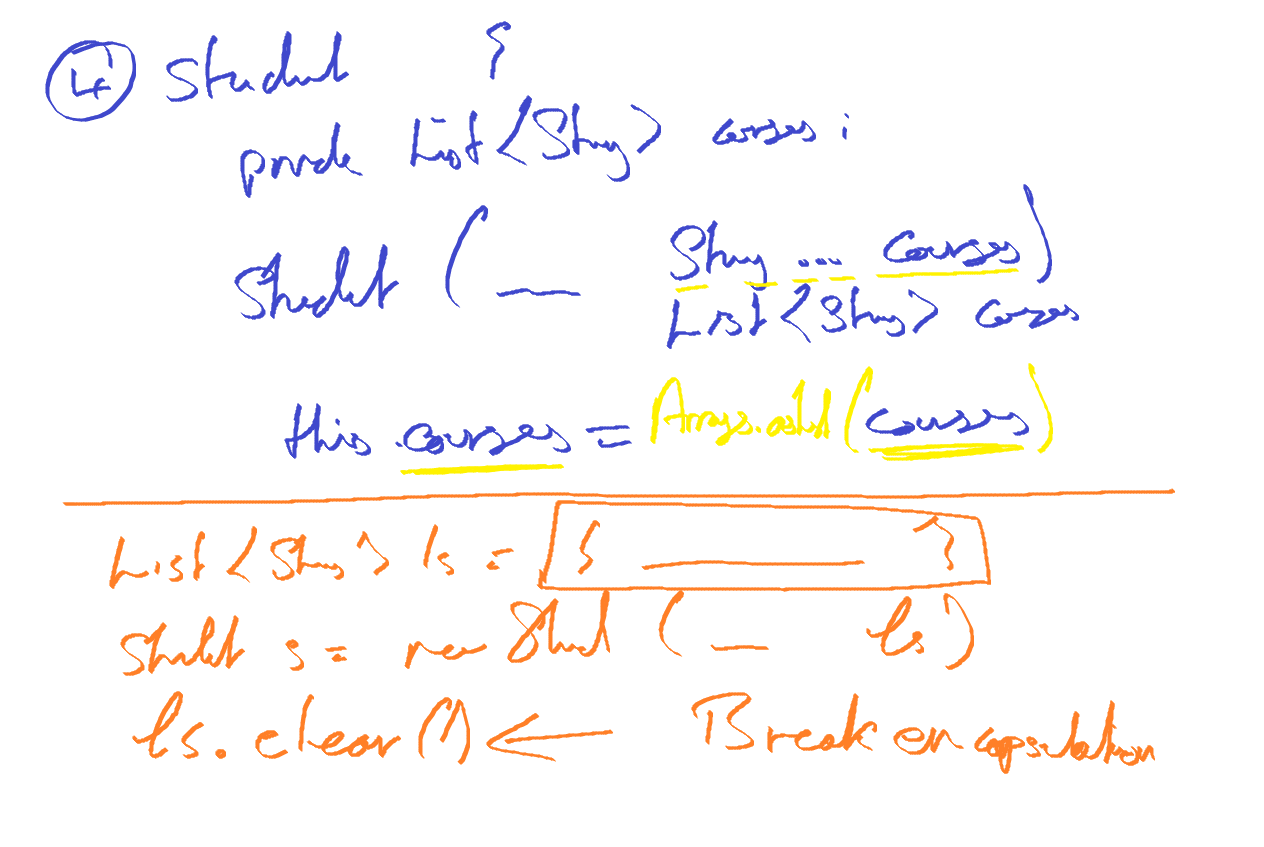 ④ Student {
private List<String> courses;
Student ( __ String ... courses)
List<String> courses
this.courses = Arrays.asList(courses)
List<String> ls = { ______ }
Student s = new Stud ( __ ls)
ls.clear() ← Break encapsulation